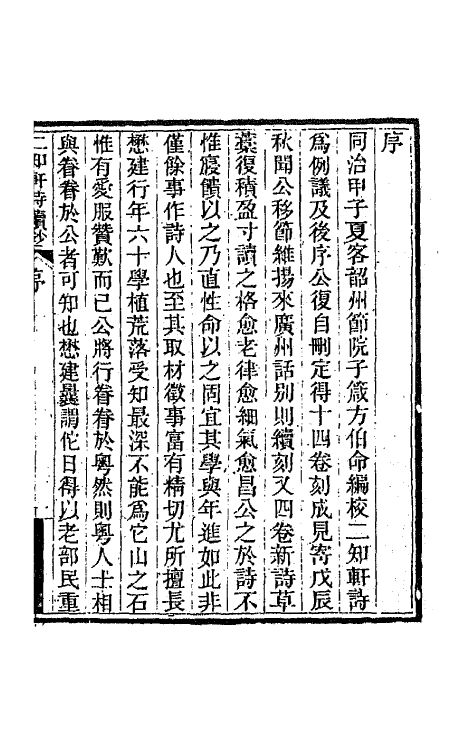 序
同治甲子夏客韶州節院子箴方伯命編校二知軒詩
爲例議及後序公復自刪定得十四卷刻成見寄戊辰
秋聞公移節維揚來廣州話別則續刻又四卷新詩草
藁復積盈寸讀之格愈老律愈細氣愈昌公之於詩不
惟寢饋以之乃直性命以之固宜其學與年進如此非
僅餘事作詩人也至其取材徵事富有精切尤所擅長
懋建行年六十學植荒落受知最深不能爲它山之石
惟有愛服贊歎而已公將行眷眷於粵然則粵人士相
與眷眷於公者可知也懋建曩謂佗日得以老部民重
二知軒詩續鈔 序